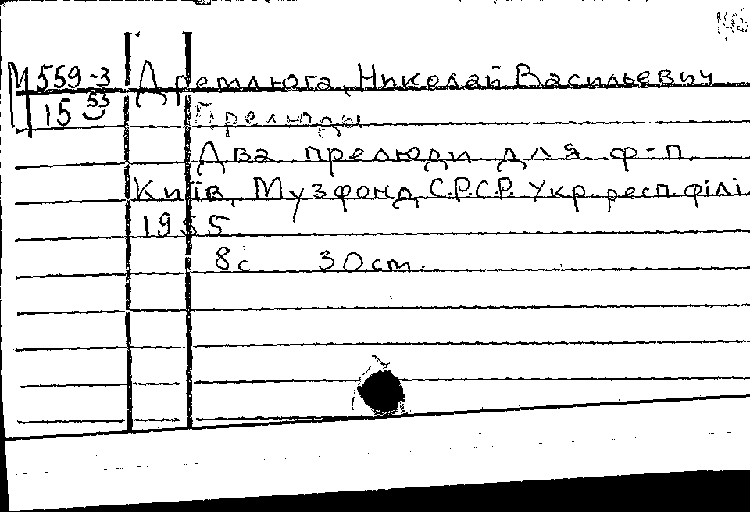 М 559-3 Дремлюга, Николай Васильевич
15 53 Прелюды
Два прелюди для ф-п.
Київ, Музфонд С.Р.С.Р. Укр. респ. філі
1955
8с 30 ст.